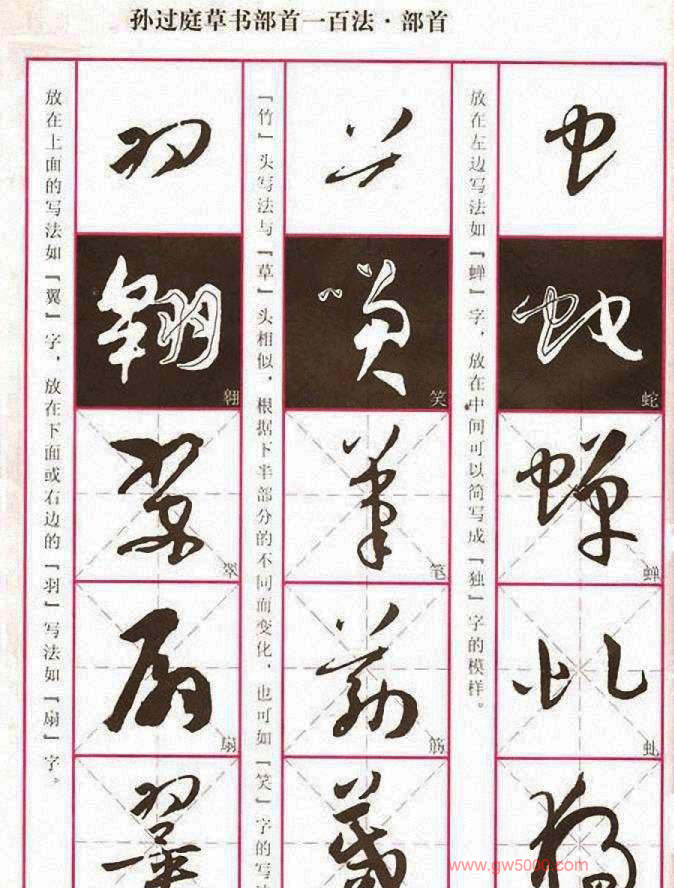 孙过庭草书部首一百法·部首
虫
蛇
蝉
虬
放在左边写法如「蝉」字，放在中间可以简写成「独」字的模样。
笑
笔
筋
「竹」头写法与「草」头相似，根据下半部分的不同而变化，也可如「笑」字的写
羽
翱
翠
扇
放在上面的写法如「翼」字，放在下面或右边的「羽」写法如「扇」字。
www.gw5000.com